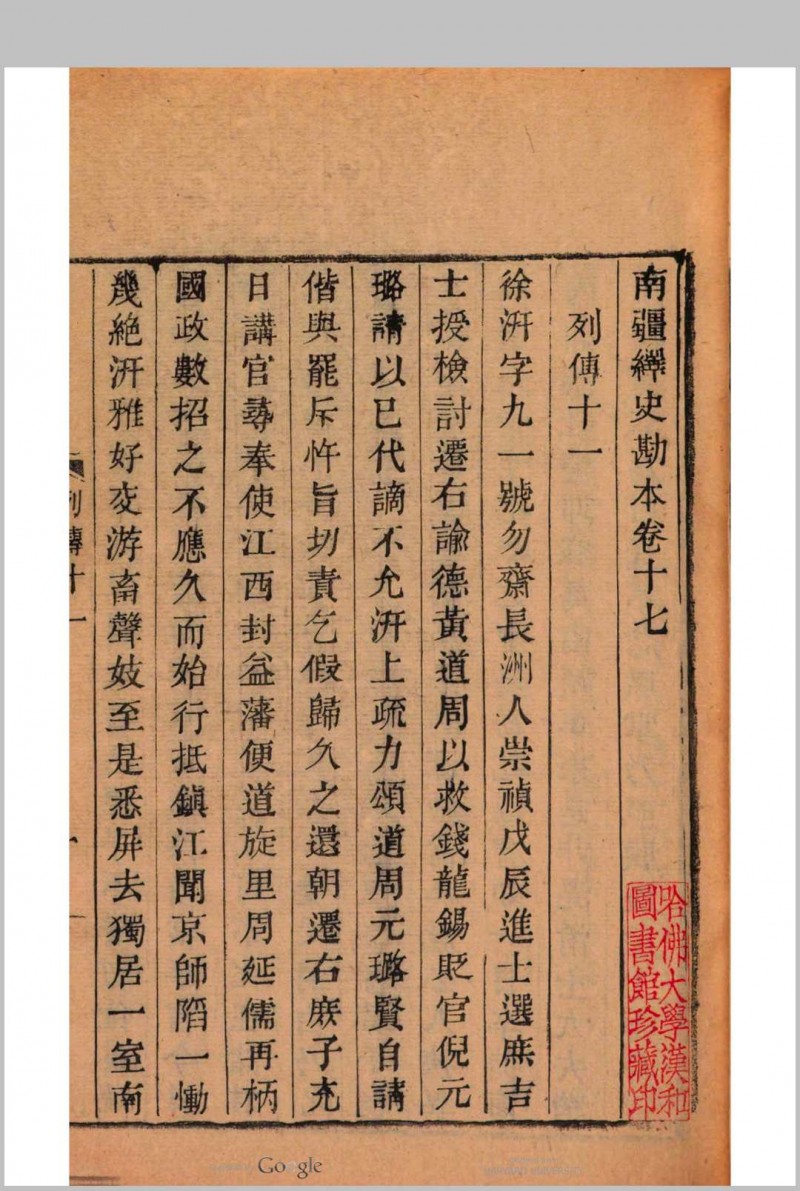 南疆繹史勘本卷十七
列傳十一
徐汧字九一號勿齋長洲人崇禎戊辰進士選庶吉
士授檢討遷右諭德黃道周以救錢龍錫貶官倪元
璐請以已代謫不允汧上疏力頌道周元璐賢自請
偕與罷斥忤旨切責乞假歸久之還朝遷右庶子充
日講官尋奉使江西封益藩便道旋里周延儒再柄
國政數招之不應久而始行抵鎮江聞京師陷一慟
幾絕汧雅好交游畜聲妓至是悉屏去獨居一室南
列傳十一
哈佛大學漢和
圖書館珍藏印
Google